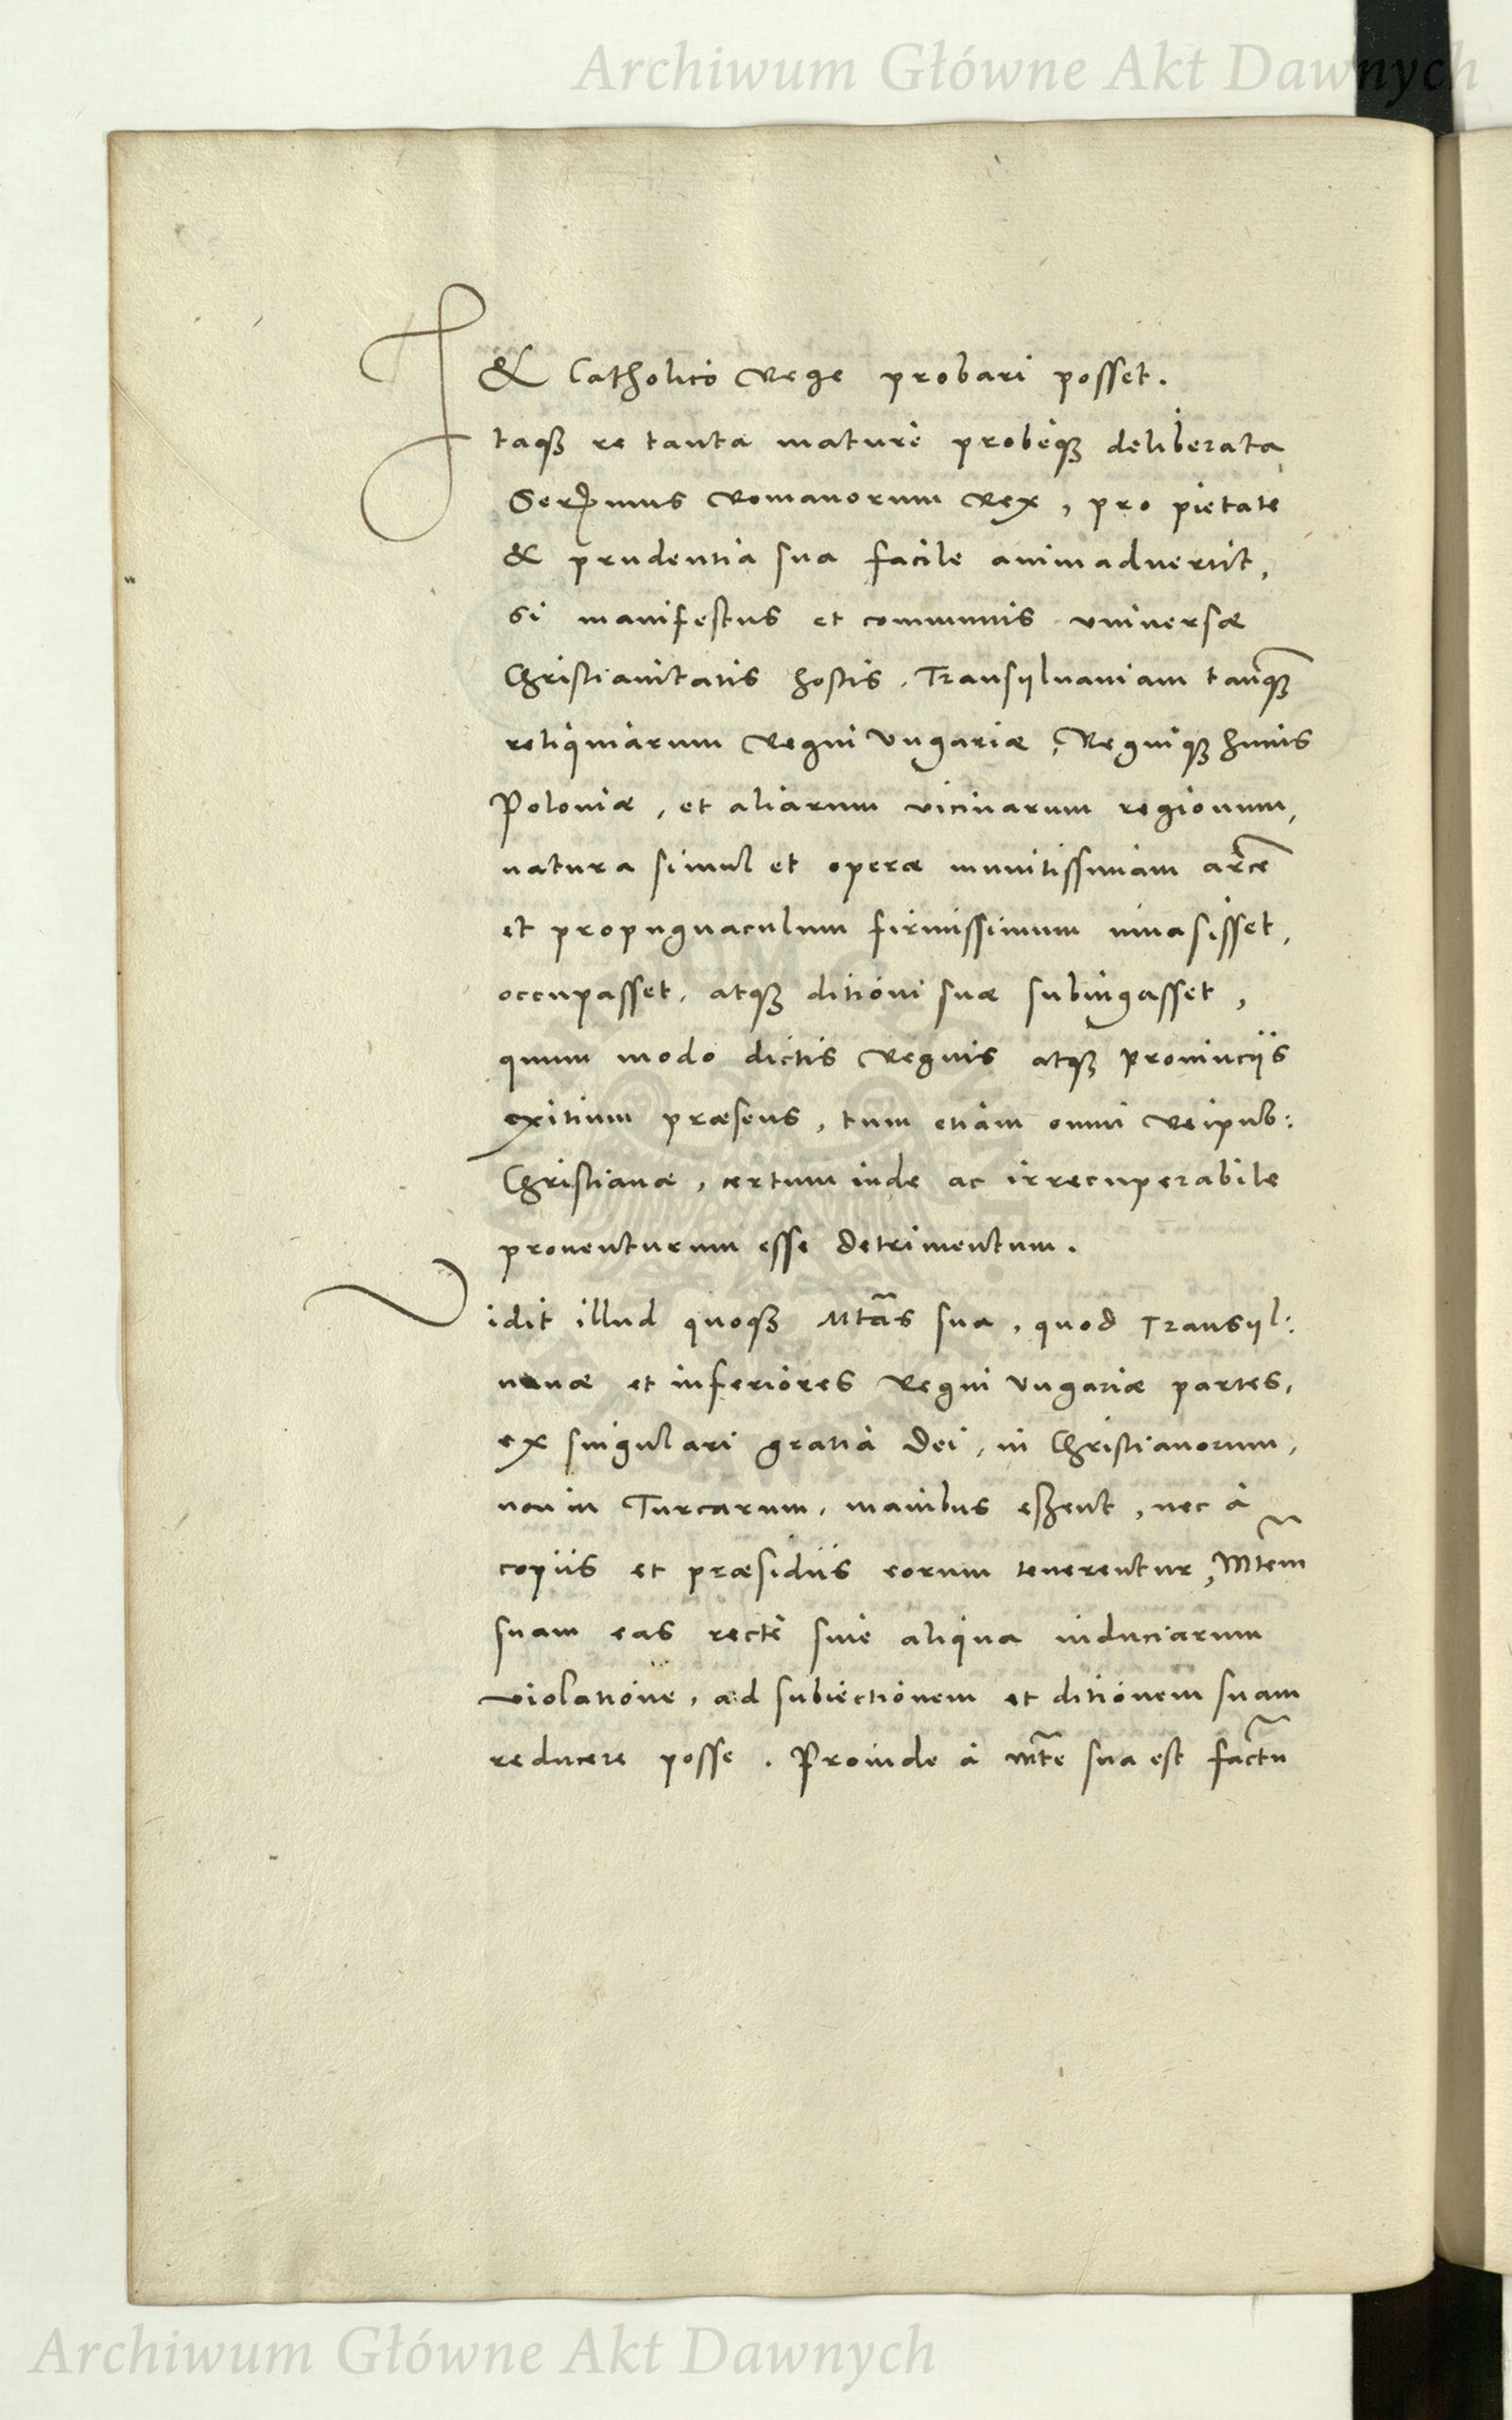 Archiwum Główne Akt Dawnych
& Catholico Rege probari posset.
Itaqꝫ re tanta mature probeqꝫ deliberata,
Serᵐᵘˢ Romanorum Rex, pro pietate
& prudentia sua facile animaduertit,
si manifestus et communis vniversæ
Christianitatis hostis, Transylvaniam tanqꝫ
reliquiarum Regni Vngariæ, Regniqꝫ huius
Poloniæ, et aliarum vicinarum regionum,
natura simul et operæ munitissimam arcē
et propugnaculum firmissimum inuasisset,
occupasset, atqꝫ ditioni suæ subiugasset,
quum modo dictis Regnis atqꝫ Prouincijs
exitium præsens, tum etiam omni Reipub:
Christianæ, certum inde ac irrecuperabile
prouenturum esse detrimentum.
Vidit illud quoqꝫ Mtãs sua, quod Transyl:
uanæ et inferiores Regni Vngariæ partes,
ex singulari gratia Dei, in Christianorum,
non in Turcarum, manibus eßent, nec à
copijs et præsidijs eorum tenerentur, Mtem̃
suam eas rectè sine aliqua induciarum
violatione, ad subiectionem et ditionem suam
reducere posse. Proinde à Mte᷉ sua est factū
Archiwum Główne Akt Dawnych